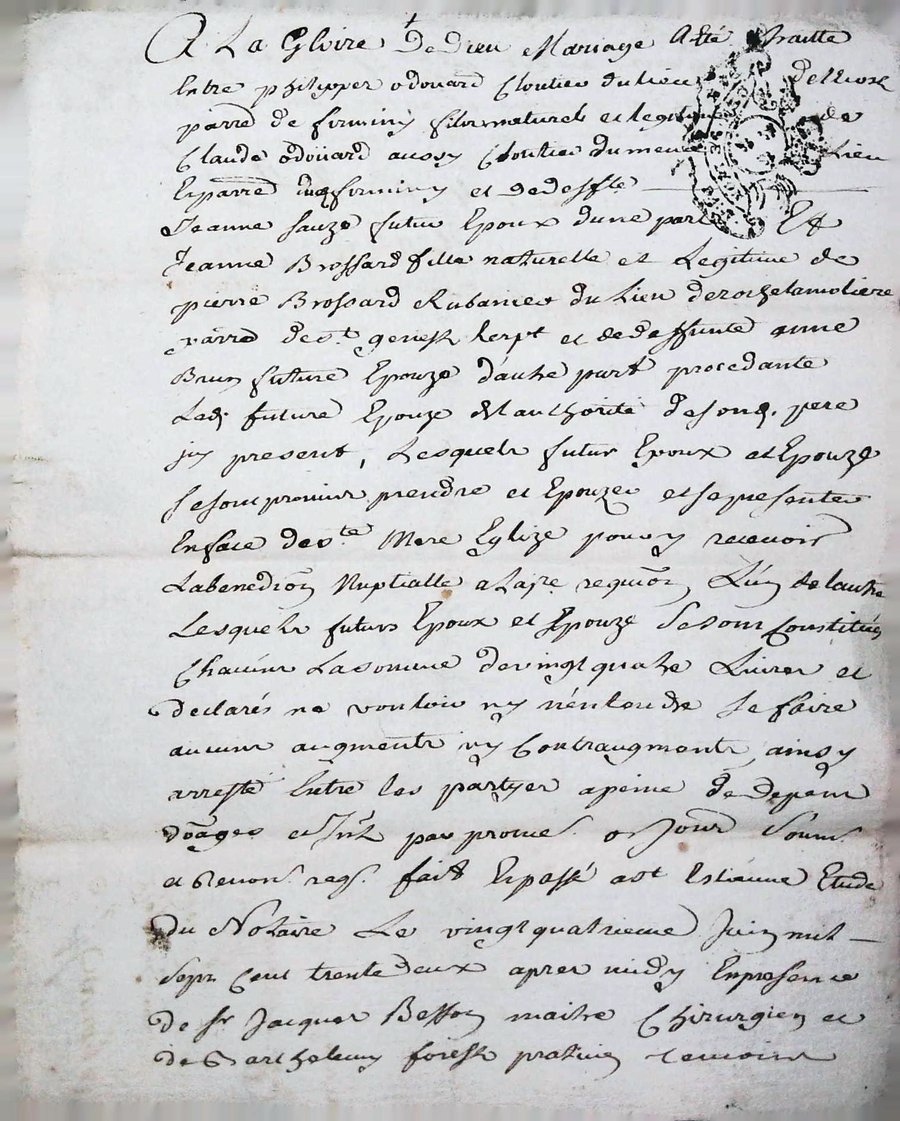 A La Gloire de dieu Mariage A été traitté
Entre philipper odouard Cloutier du lieu
parre de firminy fils naturels et legit de
Claude odoüard aussy Cloutier du mem lieu
Et parre dud firminy et de deffte
Jeanne sauze futur Epoux dune part Et
Jeanne Brossard fille naturelle et Legitime de
pierre Brossard Rubanier du Lieu de rochelamoliere
parre de st genest lerpt et de deffunte anne
Brun future Epouze dautre part procedante
Lad. future Epouze de lauthorité de sond. pere
icy present, Lesquels futur Epoux et Epouze
se sont promis prendre et Epouzer et se presenter
En face de ste Mere Eglize pour y recevoir
La benedion Nuptialle a la pre. requion Lun de lautre
Lesquels futurs Epoux et Epouze se sont Constitués
Chacuns La somme de vingt quatre Livres et
declarés ne vouloir ny nentendre se faire
aucuns augments ny Contraugments, ainsy
arresté Entre les partyes a peine de depens
doages et Intz par promes. obon soums.
et Renons. regs. fait Et passé a st Estienne Etude
du Notaire Le vingt quatrieme Juin mil
sept Cent trente deux apres midy En presence
de sr Jacques Besson maitre Chirurgien et
de Barthelemy forest praticien temoins